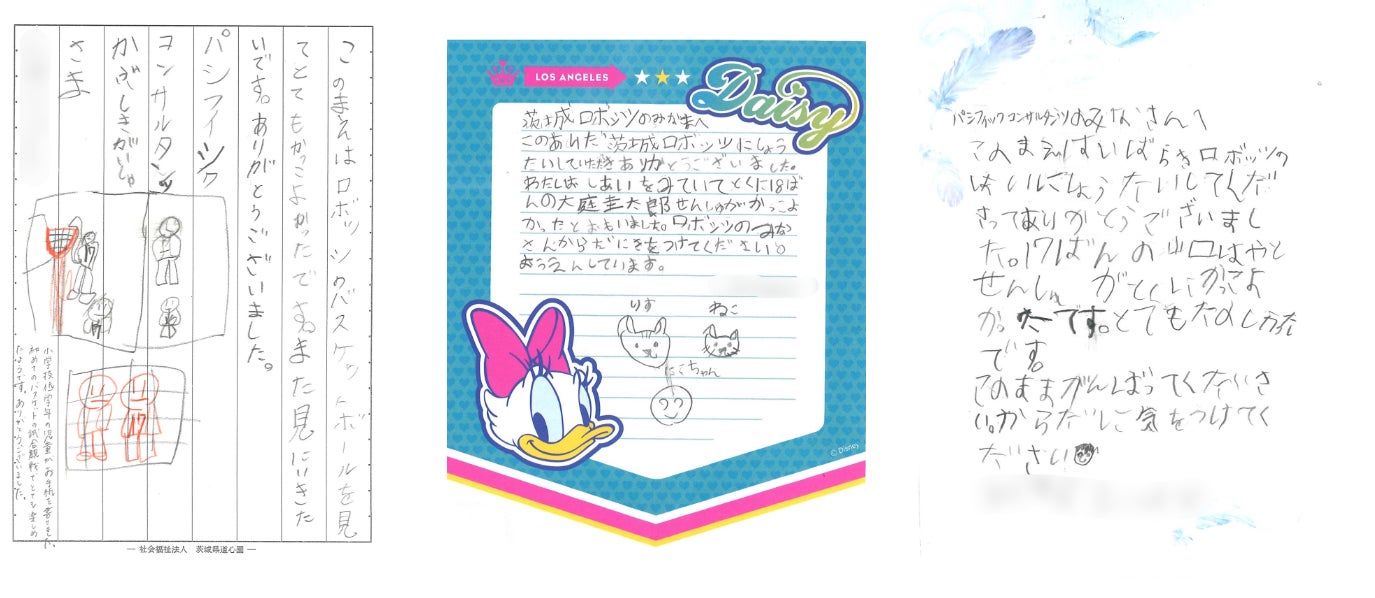 このまえはロボッツのバスケットボールを見
てとてもかっこよかったです。また見にいきた
いです。ありがとうございました。
パシフィック
コンサルタンツ
かぶしきがいしゃ
さま
17
17
小学校低学年の児童がお手紙を書きました。
初めてのバスケットの試合観戦でとても楽しめ
たようです。ありがとうございました。
― 社会福祉法人 茨城県道心園 ―
LOS ANGELES
Daisy
茨城ロボッツのみなさまへ
このあいだ茨城ロボッツにしょう
たいしていただきありがとうございました。
わたしは しあいをみていてとくに18ば
んの大庭圭太郎せんしゅがかっこよ
かったとおもいました。ロボッツのみな
さんからだにきをつけてください。
おうえんしています。
りす
ねこ
にこちゃん
© Disney
パシフィックコンサルタンツのみなさんへ
このまえはいばらきロボッツの
しょうたいしてくだ
さってありがとうございまし
た。17ばんの山口はやと
せんしゅがとくにかっこよ
かったです。とてもたのしかった
です。
このままがんばってください。
からだに気をつけてく
ださい